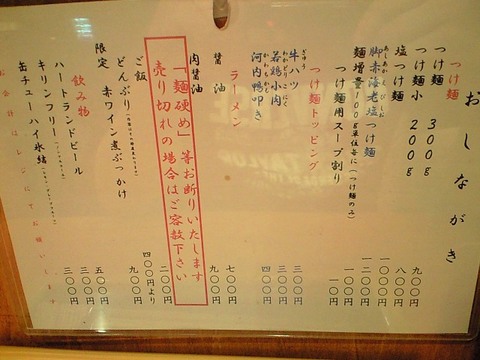 おしながき
つけ麺
つけ麺 300g 九〇〇円
つけ麺小 200g 八〇〇円
塩つけ麺 一〇〇〇円
脚赤海老塩つけ麺 一二〇〇円
麺増量100g単位毎に(つけ麺のみ) 一〇〇円
つけ麺用スープ割り 一〇円
つけ麺トッピング
牛ハツ 三〇〇円
若鶏小肉 三〇〇円
河内鴨叩き 四〇〇円
ラーメン
醤油 七〇〇円
肉醤油 九〇〇円
「麺硬め」等お断りいたします
売り切れの場合はご容赦下さい
ご飯 二〇〇円
どんぶり 四〇〇円より
限定 赤ワイン煮ぶっかけ 九〇〇円
飲み物
ハートランドビール 五〇〇円
キリンフリー 三〇〇円
缶チューハイ氷結 三〇〇円
お会計はレジにてお願いします